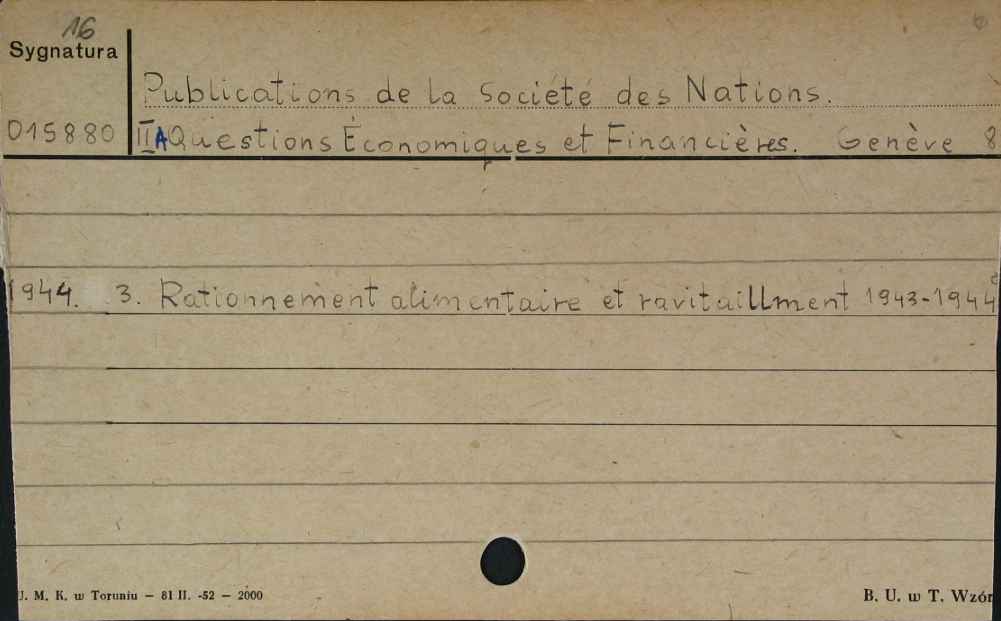 16
Sygnatura
Publications de la Société des Nations.
015880 IIA Questions Économiques et Financières. Genève 8
1944. 3. Rationnement alimentaire et ravitaillment 1943-1944
U. M. K. w Toruniu — 81 II. -52 — 2000
B. U. w T. Wzór